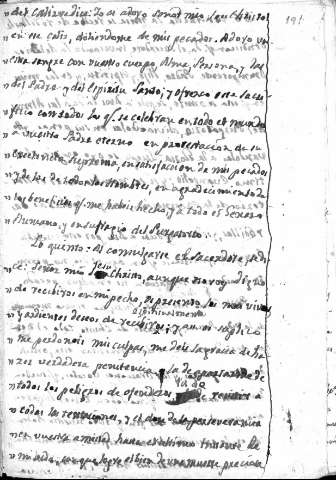 191
" del Caliz se dice: Yo os adoro Señor mio Jesu Christo
" en ese caliz, doliendome de mis pecados. Adoro vu
" estra sangre con vuestro cuerpo, Alma, Persona, y la
" del Padre y del Espiritu Santo; y ofrezco este sacri
" ficio con todos los qe. se celebran en todo el mundo
" a vuestro Padre eterno en protestacion de su
" excelencia suprema, en satisfaccion de mis pecados
" y de los de todos los hombres, en agradecimiento de
" los beneficios qe. me habeis hecho, y a todo el genero
" Humano, y en sufragio del Purgatorio.
Lo quinto: Al comulgarse el sacerdote, se di
ce: Señor mio Jesu Christo, aunque no soy digno
" de recibiros en mi pecho, os presento los mas vivos
" y ardientes deseos de recibiros; y os suplico
" me perdoneis mis culpas, me deis la gracia de ha
" cer verdadera penitencia, la de apartarme de
" todos los peligros de ofenderos, la de resistir a
" todas las tentaciones, y el don de la perseverancia
" en vuestra amistad hasta el ultimo instante de
" mi vida, para que logre el bien de una muerte preciosa